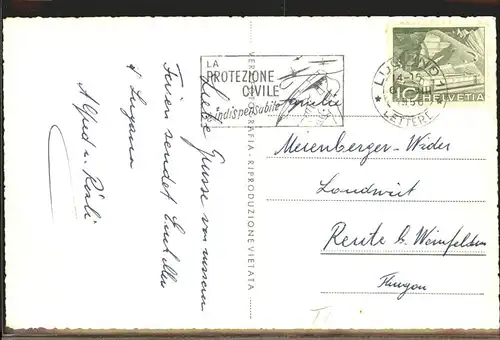 Liebe Grüsse von unseren
Ferien sendet Euch allen
Lugano
Alfred u. Rösli
VERA FOTOGRAFIA - RIPRODUZIONE VIETATA
LA
PROTEZIONE
CIVILE
è indispensabile
LUGANO 1
14-15
1956
LETTERE
HELVETIA
10
Familie
Meienberger-Wider
Landwirt
Reute b. Weinfelden
Thurgau